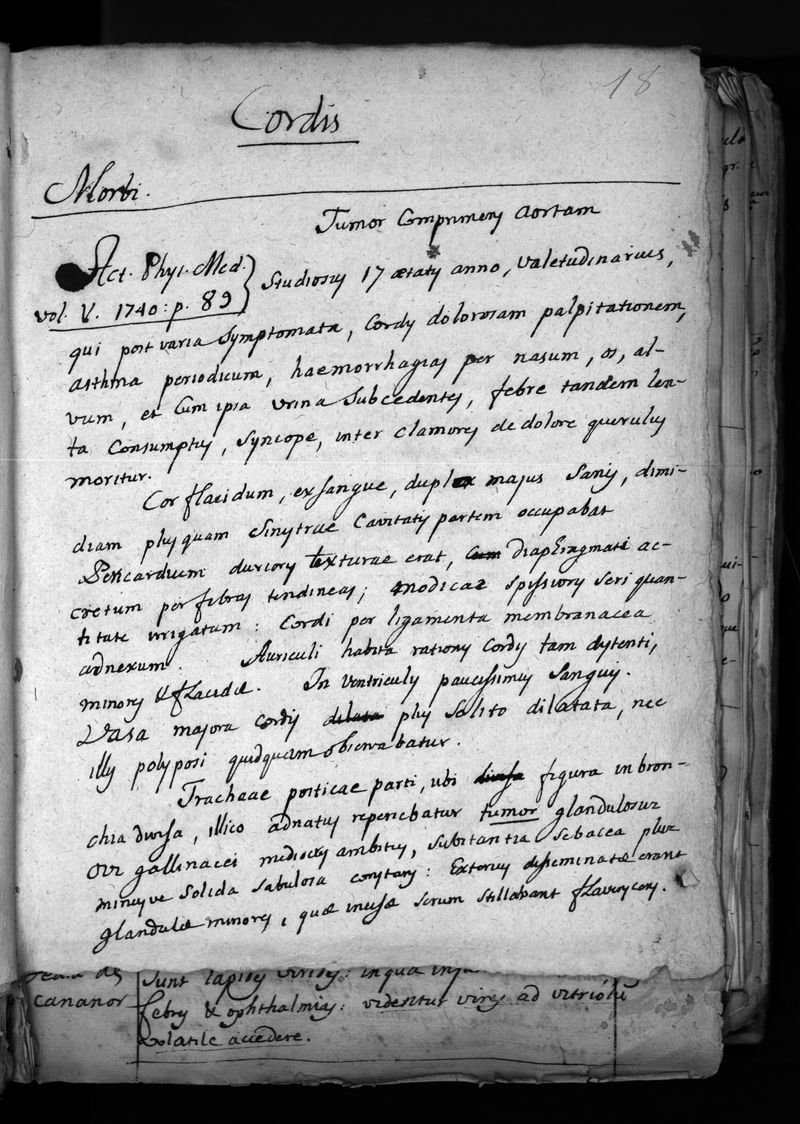 18
Cordis
Morbi.
Tumor Comprimens Aortam
Act. Phys. Med. } Studiosus 17 ætatis anno, valetudinarius,
vol. V. 1740: p. 89
qui post varia Symptomata, Cordis dolorosam palpitationem,
asthma periodicum, haemorrhagias per nasum, os, al-
vum, et cum ipsa urina Subcedentes, febre tandem len-
ta Consumptus, Syncope, inter clamores de dolore querulus
moritur.
Cor flacidum, exsangue, duplo majus Sanis, dimi-
diam plus quam Sinistrae Cavitatis partem occupabat
Pericardium durioris texturae erat, cum diaphragmati ac-
cretum per fibras tendineas; modicae spissioris seri quan-
titate irrigatum: Cordi per ligamenta membranacea
adnexum. Auriculi habita rationis Cordis tam distenti,
minores & flacidæ. In ventriculis paucissimus Sanguis.
Vasa majora Cordis dilata plus Solito dilatata, nec
illis polyposi quidquam observabatur.
Tracheae posticae parti, ubi divisa figura in bron-
chia divisa, illico adnatus reperiebatur tumor glandulosus
ovi gallinacei mediocris ambitus, substantia Sebacea plus
minusve Solida Sabulosa constans: Exterius disseminatæ erant
glandulæ minores, quæ incisæ serum stillabant flavum.
Cananor
Sunt lapides virides: in qua
febris & ophthalmias: videntur vires ad vitriolu
volatile accedere.